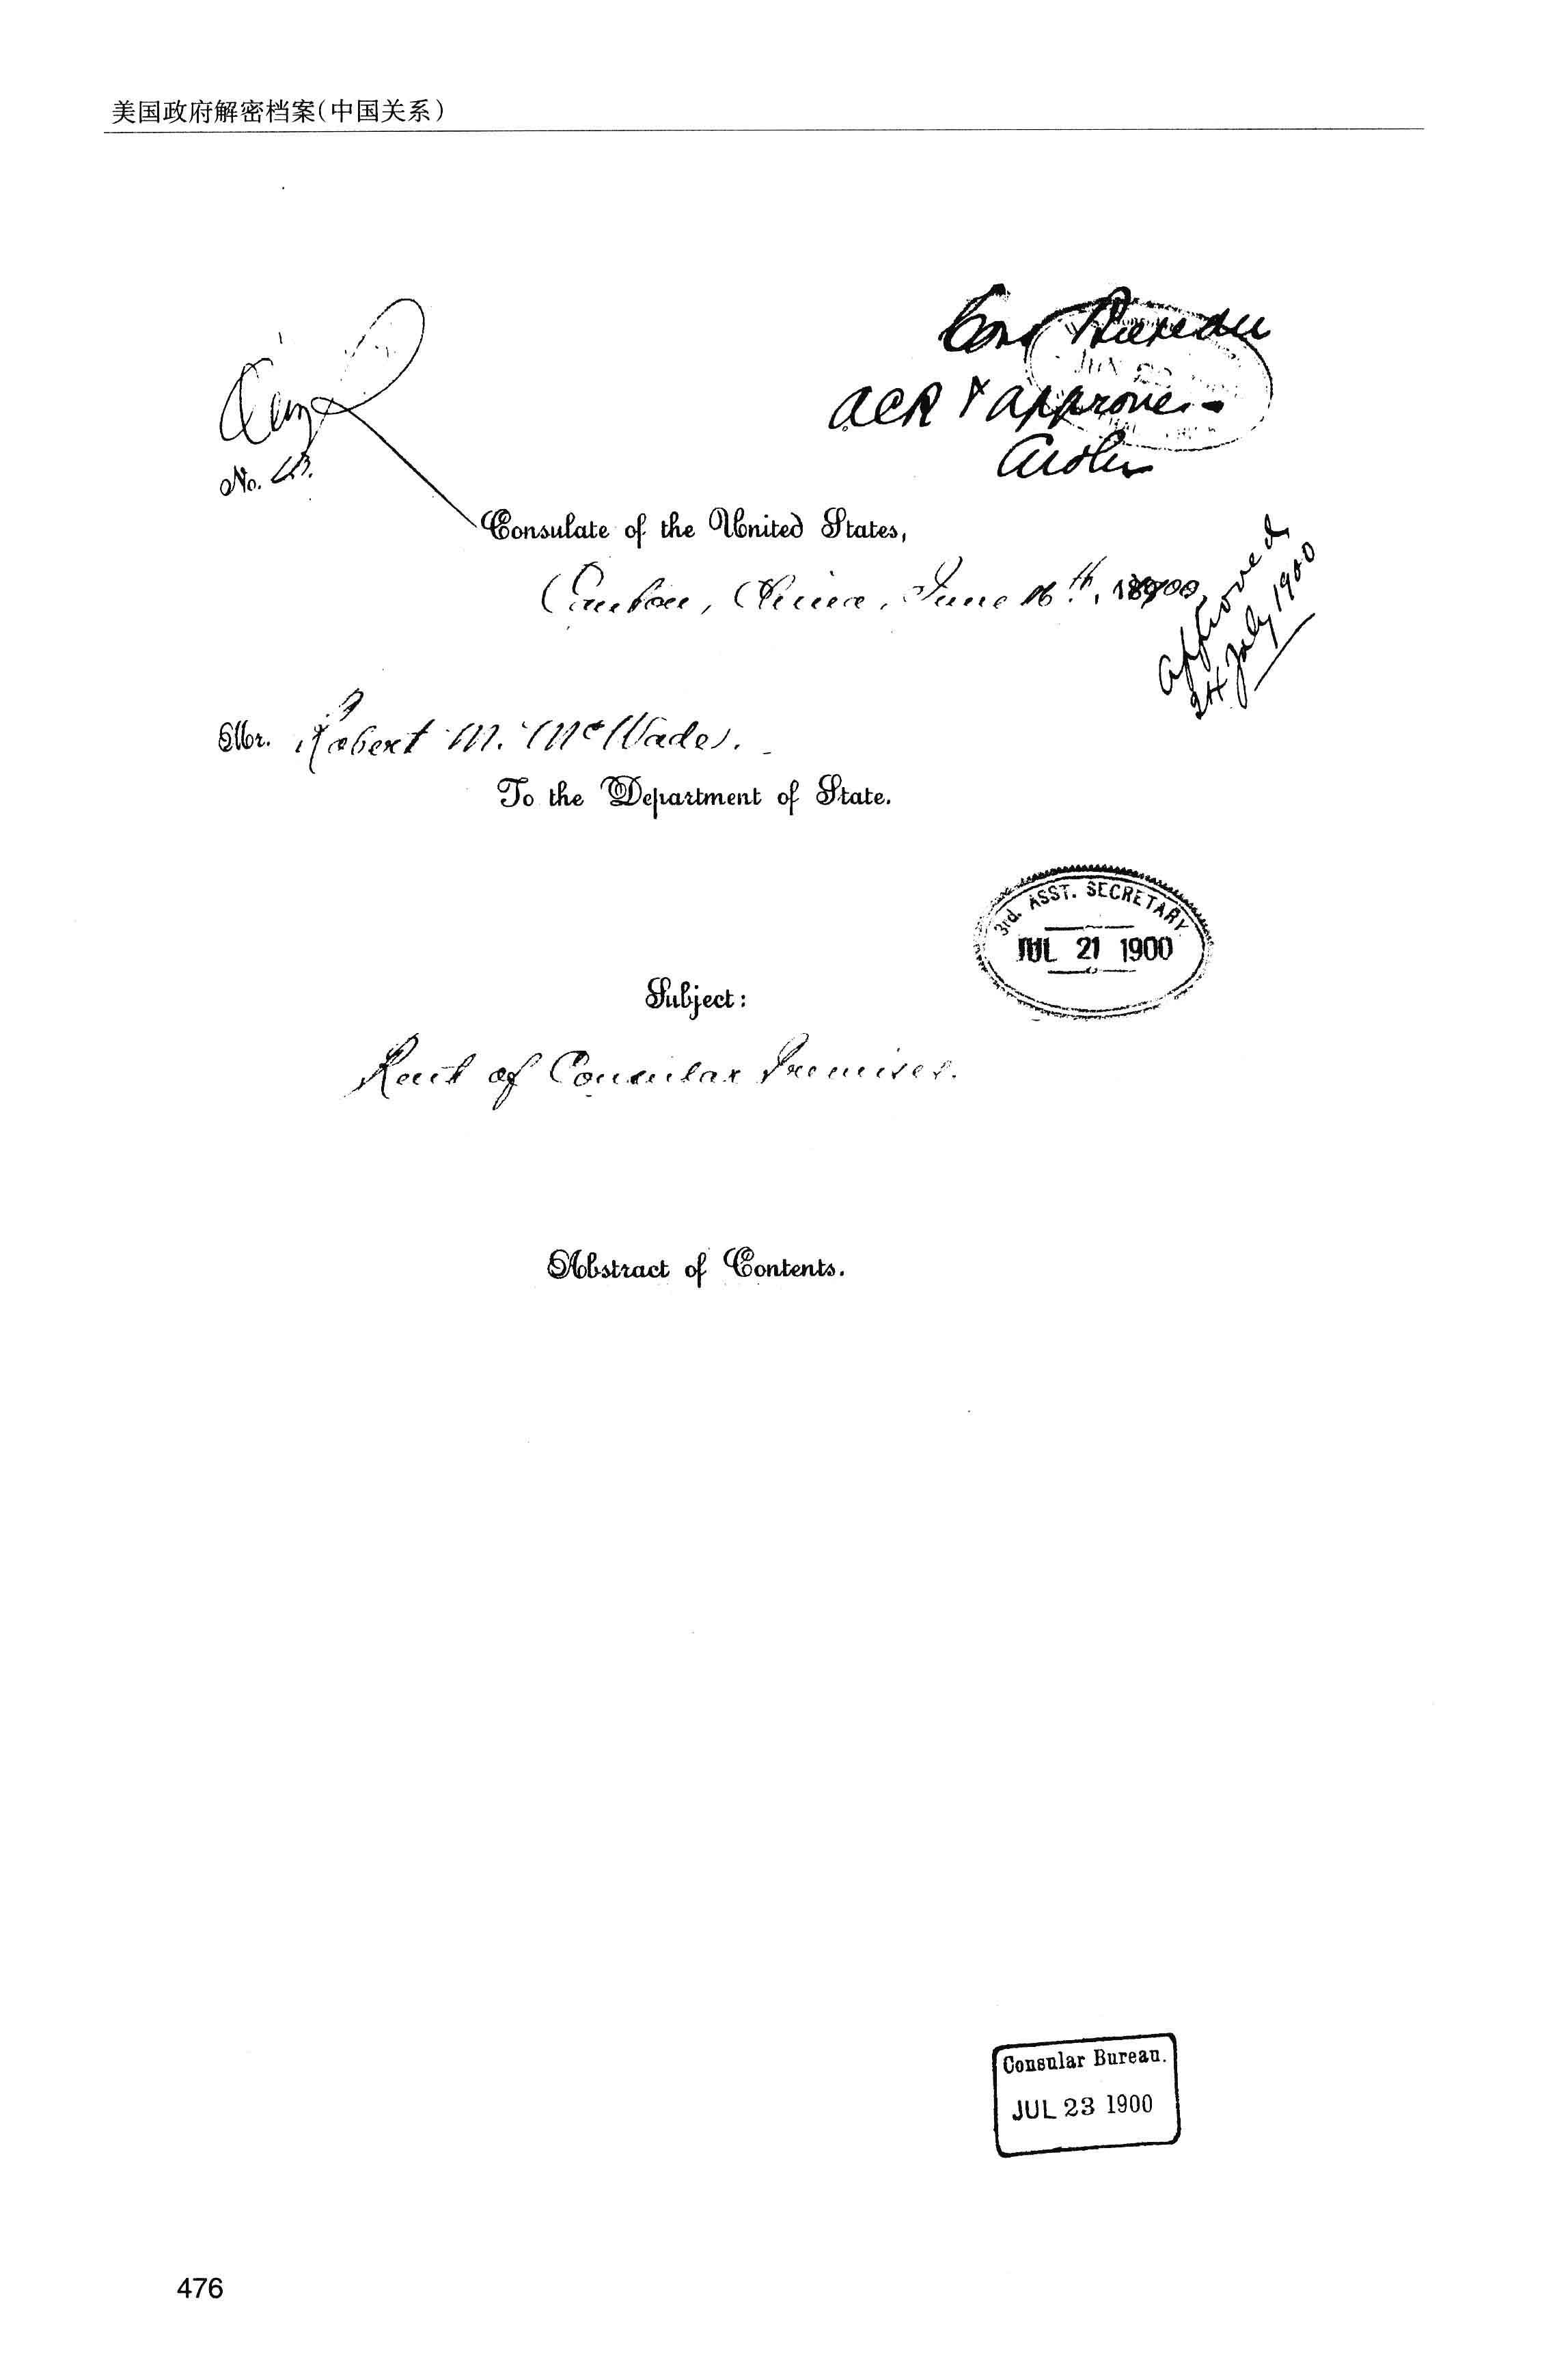 美国政府解密档案(中国关系)
Cons Bureau
ACR & approve.
No. 43.
Consulate of the United States,
Canton, China, June 16th, 1900
approved
24 July 1900
Mr. Robert M. McWade.
To the Department of State.
3rd. ASST. SECRETARY.
JUL 21 1900
Subject:
Rent of Consular Premises.
Abstract of Contents.
Consular Bureau.
JUL 23 1900
476